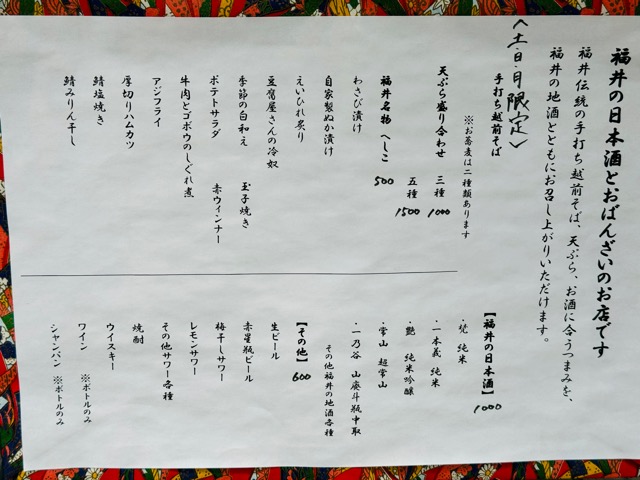 福井の日本酒とおばんざいのお店です
福井伝統の手打ち越前そば、天ぷら、お酒に合うつまみを、
福井の地酒とともにお召し上がりいただけます。
〈土・日・月限定〉
手打ち越前そば
※お蕎麦は二種類あります
天ぷら盛り合わせ 三種 1000
五種 1500
福井名物 へしこ 500
わさび漬け
自家製ぬか漬け
えいひれ炙り
豆腐屋さんの冷奴
季節の白和え 玉子焼き
ポテトサラダ 赤ウィンナー
牛肉とゴボウのしぐれ煮
アジフライ
厚切りハムカツ
鯖塩焼き
鯖みりん干し
【福井の日本酒】 1000
・梵 純米
・一本義 純米
・艶 純米吟醸
・常山 超常山
・一乃谷 山廃斗瓶中取
その他福井の地酒各種
【その他】 600
生ビール
赤星瓶ビール
梅干しサワー
レモンサワー
その他サワー各種
焼酎
ウイスキー
ワイン ※ボトルのみ
シャンパン ※ボトルのみ